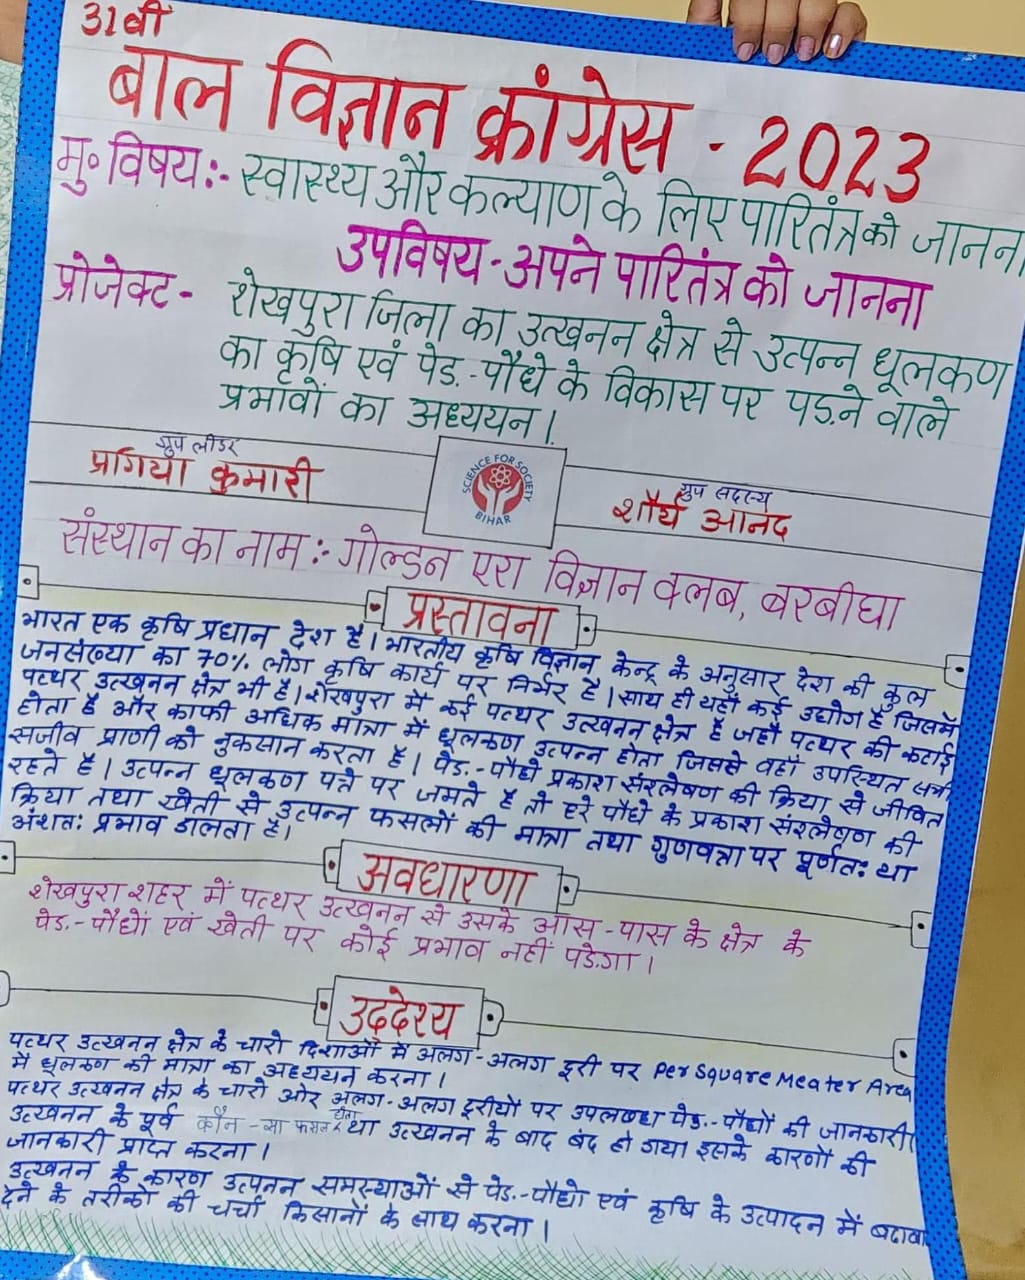 31वीं
बाल विज्ञान कांग्रेस - 2023
मु॰ विषय:- स्वास्थ्य और कल्याण के लिए पारितंत्र को जानना
उपविषय - अपने पारितंत्र को जानना
प्रोजेक्ट - शेखपुरा जिला का उत्खनन क्षेत्र से उत्पन्न धूलकण
का कृषि एवं पेड़-पौधे के विकास पर पड़ने वाले
प्रभावों का अध्ययन।
ग्रुप लीडर
प्रगिया कुमारी
SCIENCE FOR SOCIETY
BIHAR
ग्रुप सदस्य
शौर्य आनंद
संस्थान का नाम :- गोल्डन एरा विज्ञान क्लब, बरबीघा
प्रस्तावना
भारत एक कृषि प्रधान देश है। भारतीय कृषि विज्ञान केन्द्र के अनुसार देश की कुल
जनसंख्या का 70% लोग कृषि कार्य पर निर्भर है। साथ ही यहाँ कई उद्योग है जिसमें
पत्थर उत्खनन क्षेत्र भी है। शेखपुरा में कई पत्थर उत्खनन क्षेत्र है जहाँ पत्थर की कटाई
होता है और काफी अधिक मात्रा में धूलकण उत्पन्न होता जिससे वहाँ उपस्थित सभी
सजीव प्राणी को नुकसान करता है। पेड़-पौधे प्रकाश संश्लेषण की क्रिया से जीवित
रहते है। उत्पन्न धूलकण पत्ते पर जमते है तो हरे पौधे के प्रकाश संश्लेषण की
क्रिया तथा खेती से उत्पन्न फसलों की मात्रा तथा गुणवत्ता पर पूर्णतः या
अंशतः प्रभाव डालता है।
अवधारणा
शेखपुरा शहर में पत्थर उत्खनन से उसके आस-पास के क्षेत्र के
पेड़-पौधों एवं खेती पर कोई प्रभाव नहीं पड़ेगा।
उद्देश्य
पत्थर उत्खनन क्षेत्र के चारो दिशाओं में अलग-अलग दूरी पर Per Square Meater Area
में धूलकण की मात्रा का अध्ययन करना।
पत्थर उत्खनन क्षेत्र के चारो ओर अलग-अलग दूरीयों पर उपलब्ध पेड़-पौधों की जानकारी।
उत्खनन के पूर्व कौन-सा फसल होता था उत्खनन के बाद बंद हो गया इसके कारणों की
जानकारी प्राप्त करना।
उत्खनन के कारण उत्पनन समस्याओं से पेड़-पौधो एवं कृषि के उत्पादन में बढावा
देने के तरीको की चर्चा किसानों के साथ करना।